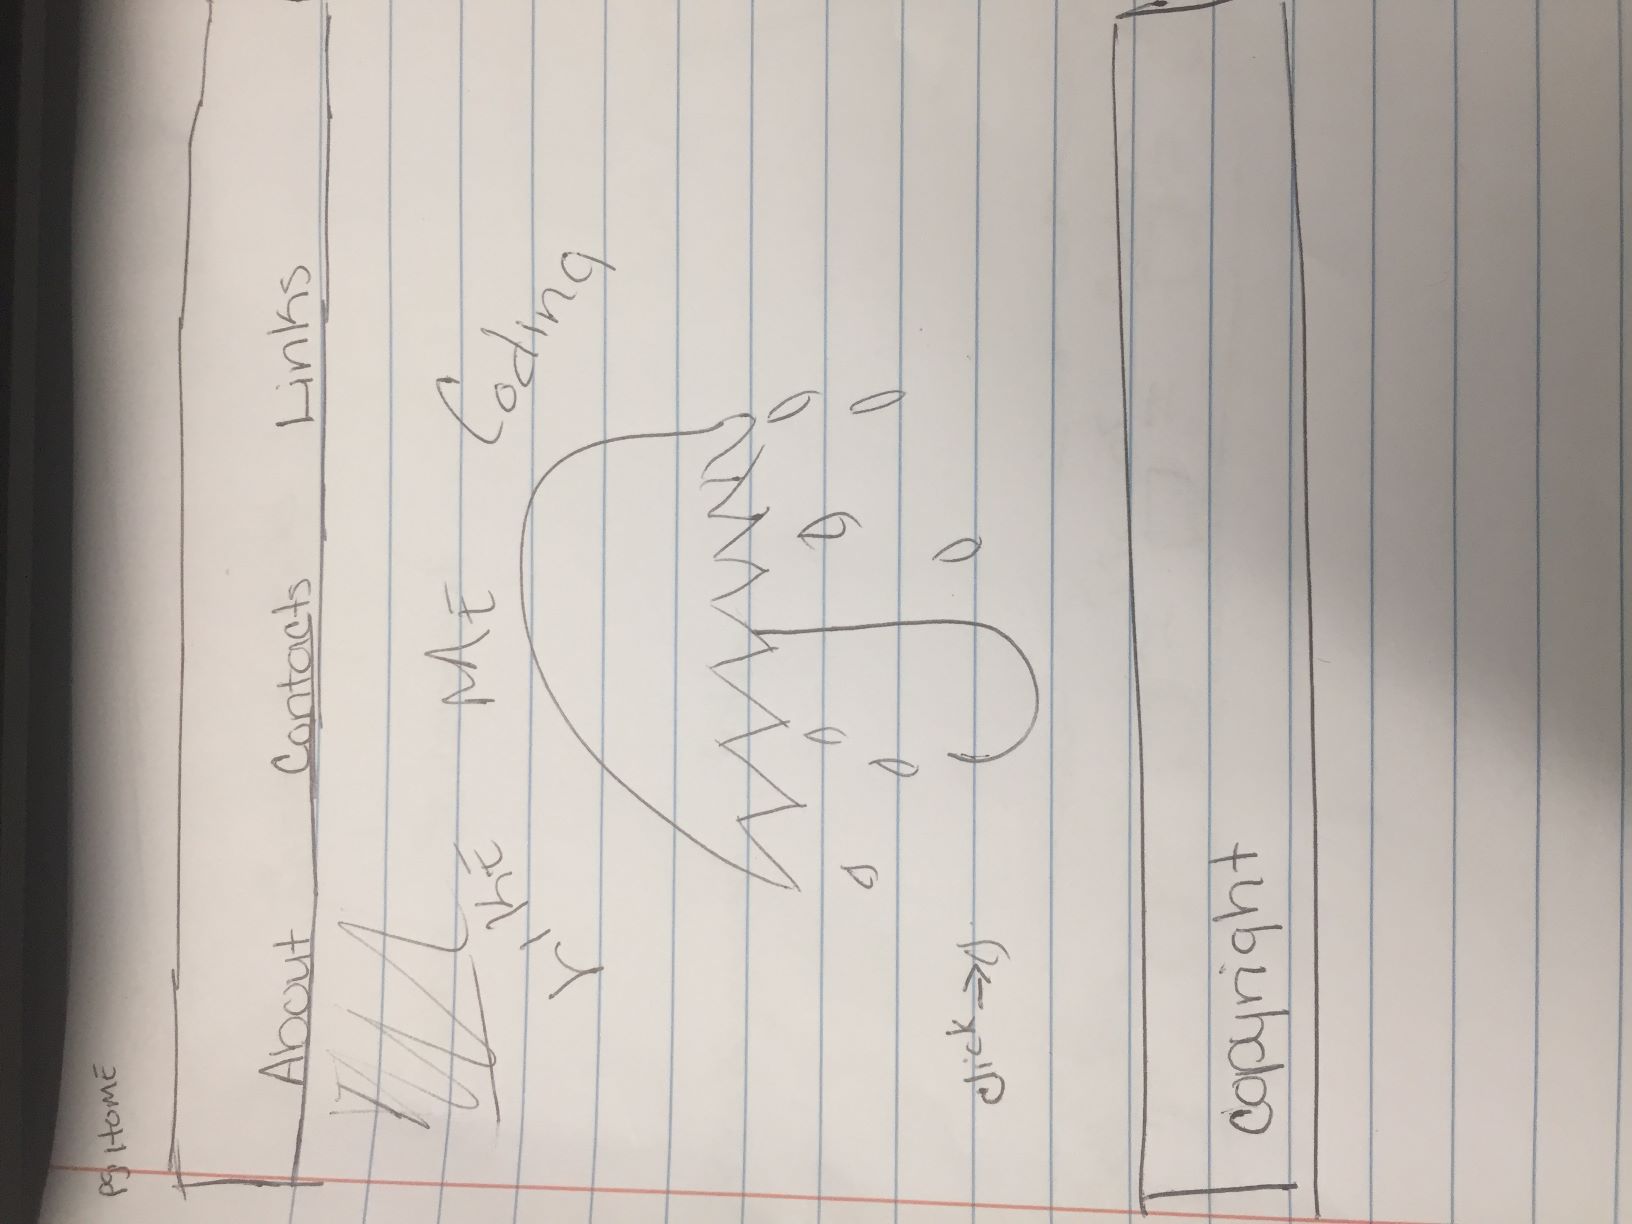 pg HOME
About Contacts Links
LIKE ME Coding
click →
copyright